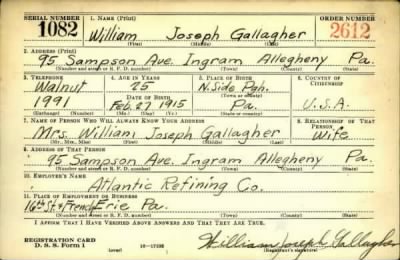 SERIAL NUMBER 1. NAME (Print) ORDER NUMBER
1082 William Joseph Gallagher 2612
(First) (Middle) (Last)
2. ADDRESS (Print)
95 Sampson Ave. Ingram Allegheny Pa.
(Number and street or R. F. D. number) (Town) (County) (State)
3. TELEPHONE 4. AGE IN YEARS 5. PLACE OF BIRTH 6. COUNTRY OF CITIZENSHIP
Walnut 25 N. Side Pgh.
DATE OF BIRTH (Town or county)
1991 Feb. 27 1915 Pa. U.S.A.
(Exchange) (Number) (Mo.) (Day) (Yr.) (State or country)
7. NAME OF PERSON WHO WILL ALWAYS KNOW YOUR ADDRESS 8. RELATIONSHIP OF THAT PERSON
Mrs. William Joseph Gallagher Wife
(Mr., Mrs., Miss) (First) (Middle) (Last)
9. ADDRESS OF THAT PERSON
95 Sampson Ave. Ingram Allegheny Pa.
(Number and street or R. F. D. number) (Town) (County) (State)
10. EMPLOYER'S NAME
Atlantic Refining Co.
11. PLACE OF EMPLOYMENT OR BUSINESS
16th St. & French Erie Pa.
(Number and street or R. F. D. number) (Town) (County) (State)
I AFFIRM THAT I HAVE VERIFIED ABOVE ANSWERS AND THAT THEY ARE TRUE.
REGISTRATION CARD
D. S. S. Form 1 William Joseph Gallagher